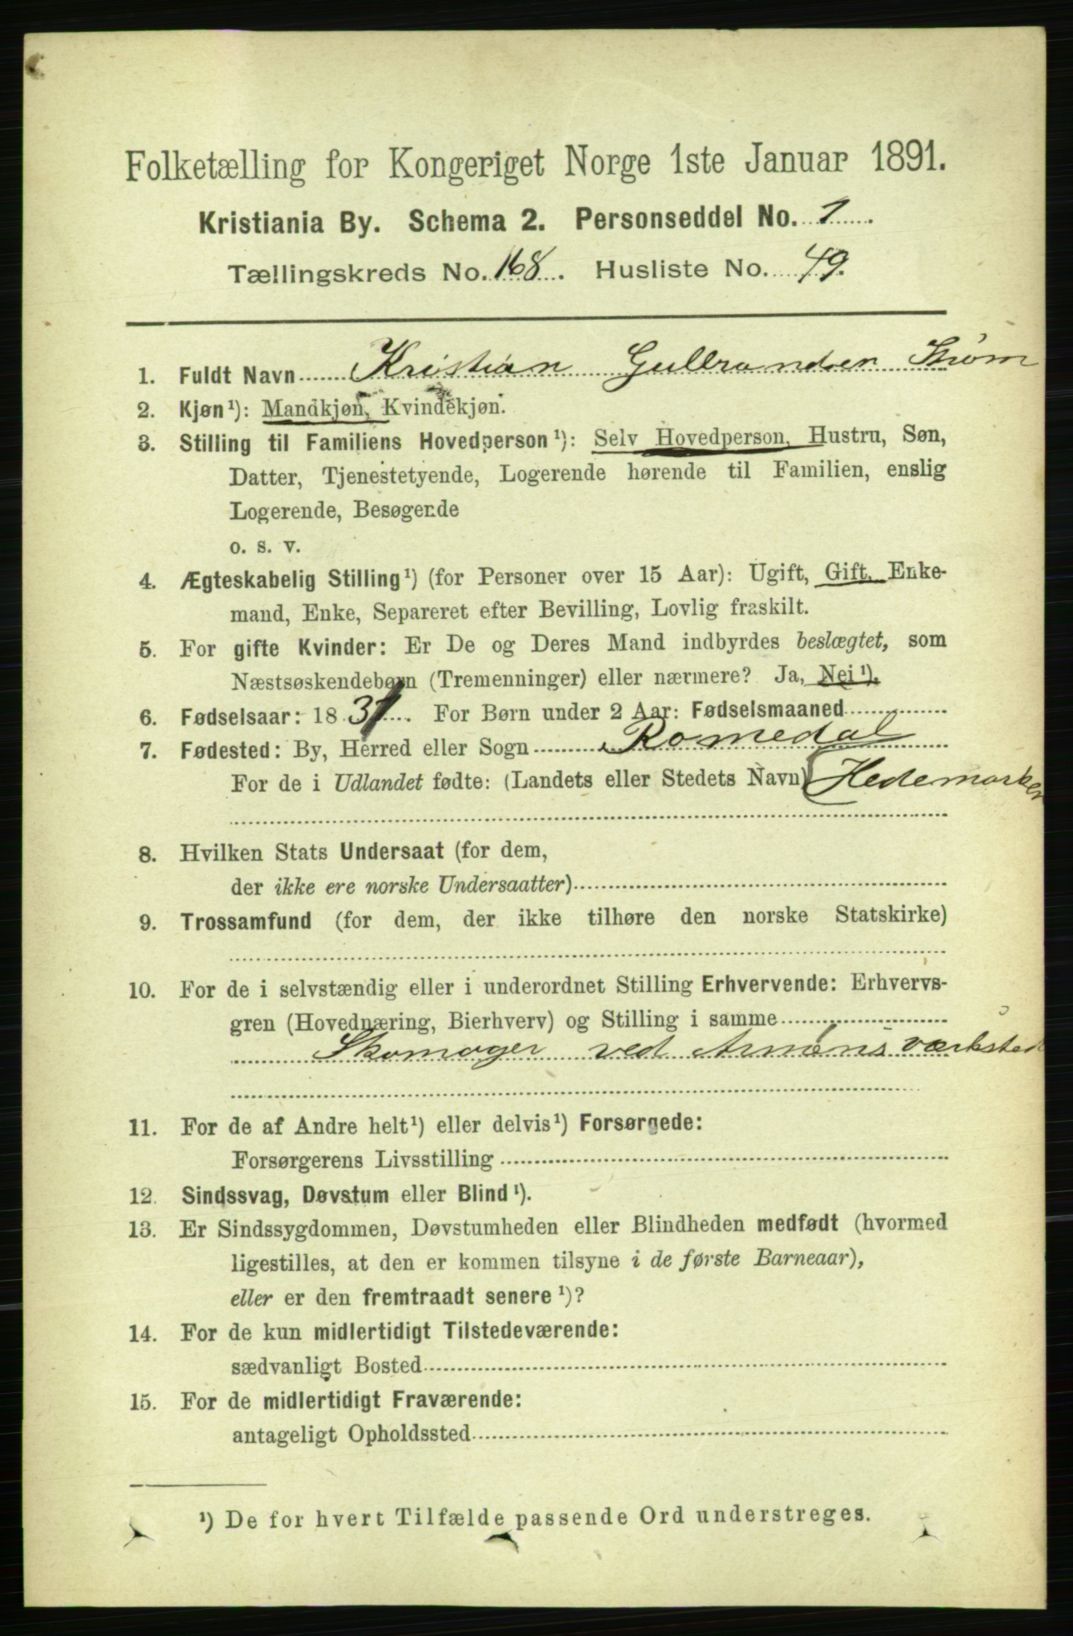 Folketælling for Kongeriget Norge 1ste Januar 1891.
Kristiania By. Schema 2. Personseddel No. 1.
Tællingskreds No. 168. Husliste No. 49.
1. Fuldt Navn Kristian Gulbrandsen Strøm
2. Kjøn¹): Mandkjøn, Kvindekjøn.
3. Stilling til Familiens Hovedperson¹): Selv Hovedperson, Hustru, Søn,
Datter, Tjenestetyende, Logerende hørende til Familien, enslig
Logerende, Besøgende
o. s. v.
4. Ægteskabelig Stilling¹) (for Personer over 15 Aar): Ugift, Gift, Enke-
mand, Enke, Separeret efter Bevilling, Lovlig fraskilt.
5. For gifte Kvinder: Er De og Deres Mand indbyrdes beslægtet, som
Næstsøskendebørn (Tremenninger) eller nærmere? Ja, Nei¹).
6. Fødselsaar: 1831. For Børn under 2 Aar: Fødselsmaaned
7. Fødested: By, Herred eller Sogn Romedal
For de i Udlandet fødte: (Landets eller Stedets Navn) Hedemarken
8. Hvilken Stats Undersaat (for dem,
der ikke ere norske Undersaatter)
9. Trossamfund (for dem, der ikke tilhøre den norske Statskirke)
10. For de i selvstændig eller i underordnet Stilling Erhvervende: Erhvervs-
gren (Hovednæring, Bierhverv) og Stilling i samme
Skomager ved værksted
11. For de af Andre helt¹) eller delvis¹) Forsørgede:
Forsørgerens Livsstilling
12. Sindssvag, Døvstum eller Blind¹).
13. Er Sindssygdommen, Døvstumheden eller Blindheden medfødt (hvormed
ligestilles, at den er kommen tilsyne i de første Barneaar),
eller er den fremtraadt senere¹)?
14. For de kun midlertidigt Tilstedeværende:
sædvanligt Bosted
15. For de midlertidigt Fraværende:
antageligt Opholdssted
¹) De for hvert Tilfælde passende Ord understreges.